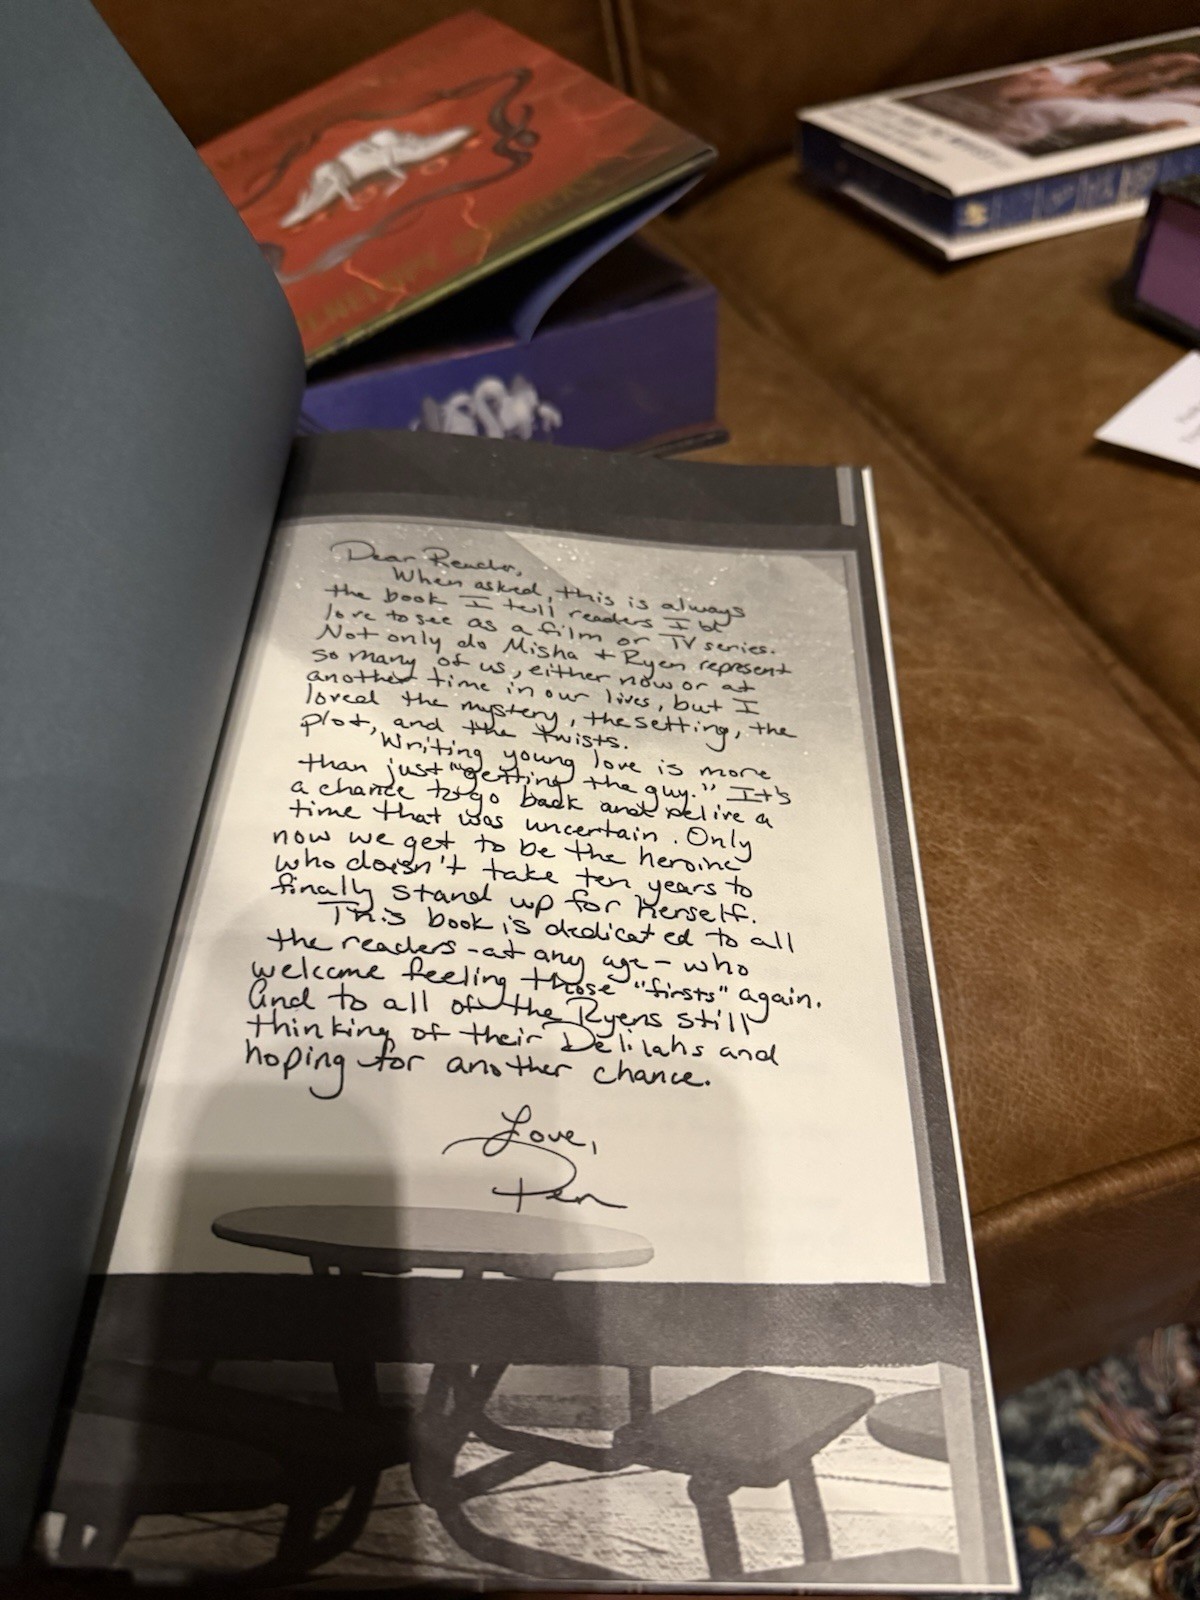 Dear Reader,
When asked, this is always
the book I tell readers I'd
love to see as a film or TV series.
Not only do Misha + Ryen represent
so many of us, either now or at
another time in our lives, but I
loved the mystery, the setting, the
plot, and the twists.
Writing young love is more
than just "getting the guy." It's
a chance to go back and relive a
time that was uncertain. Only
now we get to be the heroine
who doesn't take ten years to
finally stand up for herself.
This book is dedicated to all
the readers - at any age - who
welcome feeling those "firsts" again.
And to all of the Ryens still
thinking of their Delilahs and
hoping for another chance.
Love,
Pen